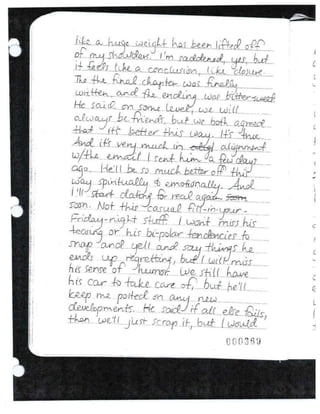 like a huge weight has been lifted off
of my shoulders. I'm saddened, yes, but
it feels like a conclusion, like closure
The the final chapter was finally
written, and the ending was bitter-sweet
He said on some level, we will
always be friends, but we both agreed
that it's better this way. It's true
And it's very much in alignment
w/the email I sent him a few days
ago. He'll be so much better off this
way spiritually & emotionally. And
I'll start dating for real again soon
soon. Not this casual fill-in-your-
Friday-night stuff. I won't miss his
teasing or his bi-polar tendencies to
snap and yell and say things he
ends up regretting, but I will miss
his sense of humor. We still have
his car to take care of, but he'll
keep me posted on any new
developments. He said if all else fails,
then we'll just scrap it, but I would
000369